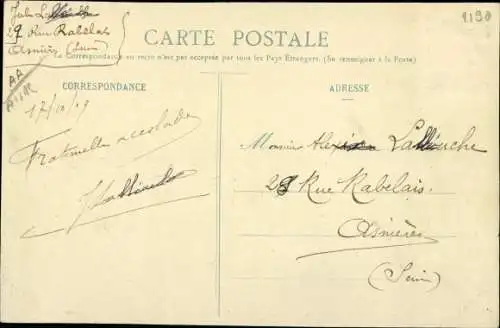 Jules
29 Rue Rabelais
Asnières (Seine)
1190
CARTE POSTALE
La Correspondance au recto n'est pas acceptée par tous les Pays Étrangers. (Se renseigner à la Poste)
CORRESPONDANCE
ADRESSE
AA
17/10/09
Fraternelle accolade
Monsieur Lallouche
28 Rue Rabelais.
Asnières
(Seine)